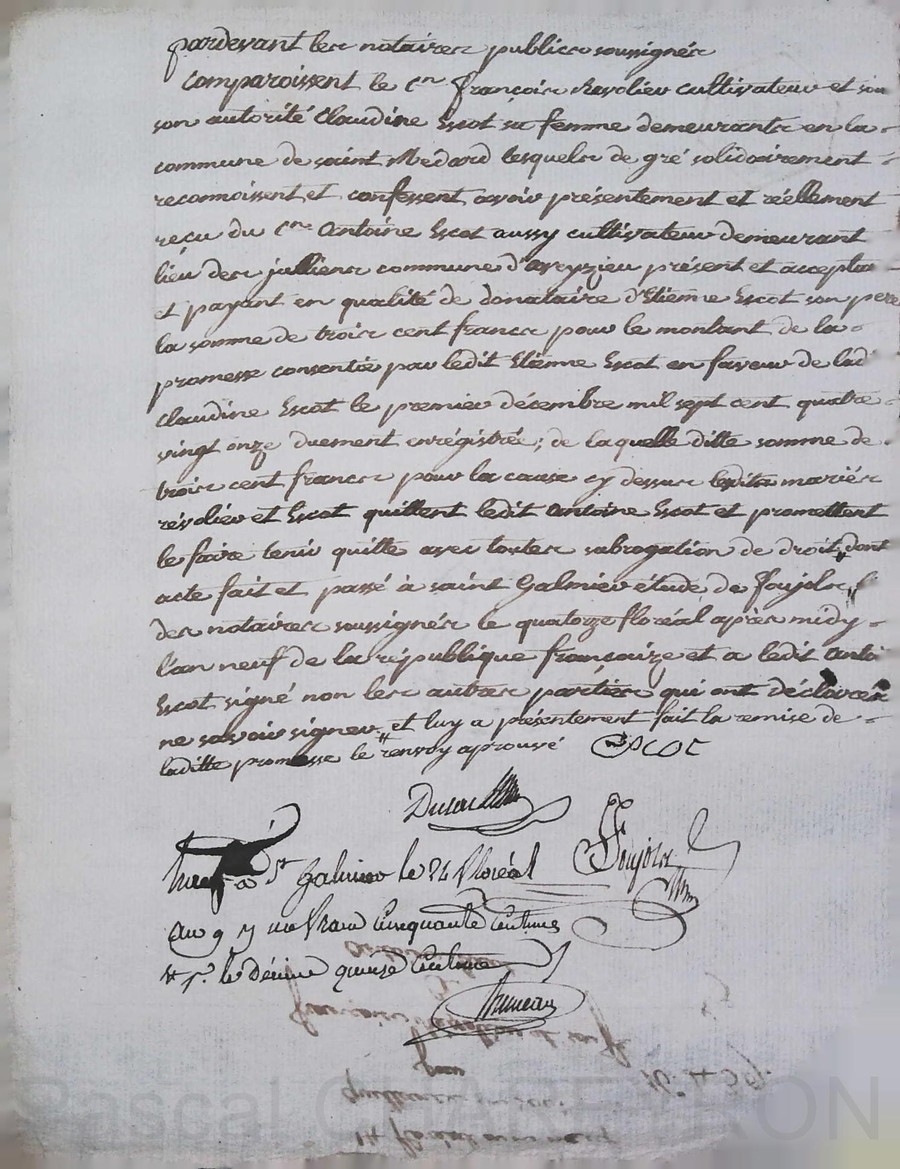 pardevant les notaires publics soussignés
comparoissent le Cen françois Revolier cultivateur et sou
son autorité Claudine Escot sa femme demeurants en la
commune de saint Medard lesquels de gré solidairement
reconnoissent et confessent avoir présentement et réellement
reçu du Cen Antoine Escot aussy cultivateur demeurant
lieu des julliens commune d'aveyzieu présent et accepta
et payant en qualité de donataire d'Etienne Escot son pere
la somme de trois cent francs pour le montant de la
promesse consentie par ledit Etienne Escot en faveur de lad
Claudine Escot le premier décembre mil sept cent quatre
vingt onze duement enrégistrée; de laquelle ditte somme de
trois cent francs pour la cause cy dessus lesdits mariés
révolier et Escot quittent ledit Antoine Escot et promettent
le faire tenir quitte avec toutes subrogation de droit, dont
acte fait et passé à saint Galmier étude de Foujols l'
des notaires soussignés le quatorze floréal après midy
l'an neuf de la république françaize et a ledit Anto
Escot signé non les autres parties qui ont déclarés
ne savoir signer et luy a présentement fait la remise de
laditte promesse le renvoy aprouvé Escot
Foujols
à St Galmier le 24 floréal
an 9 un franc Cinquante Centimes
le Décime quinze Centimes
Bruneau
françois Revolier et sa f
par
quittance
14 floréal an neuf
Pascal CHARETIRON